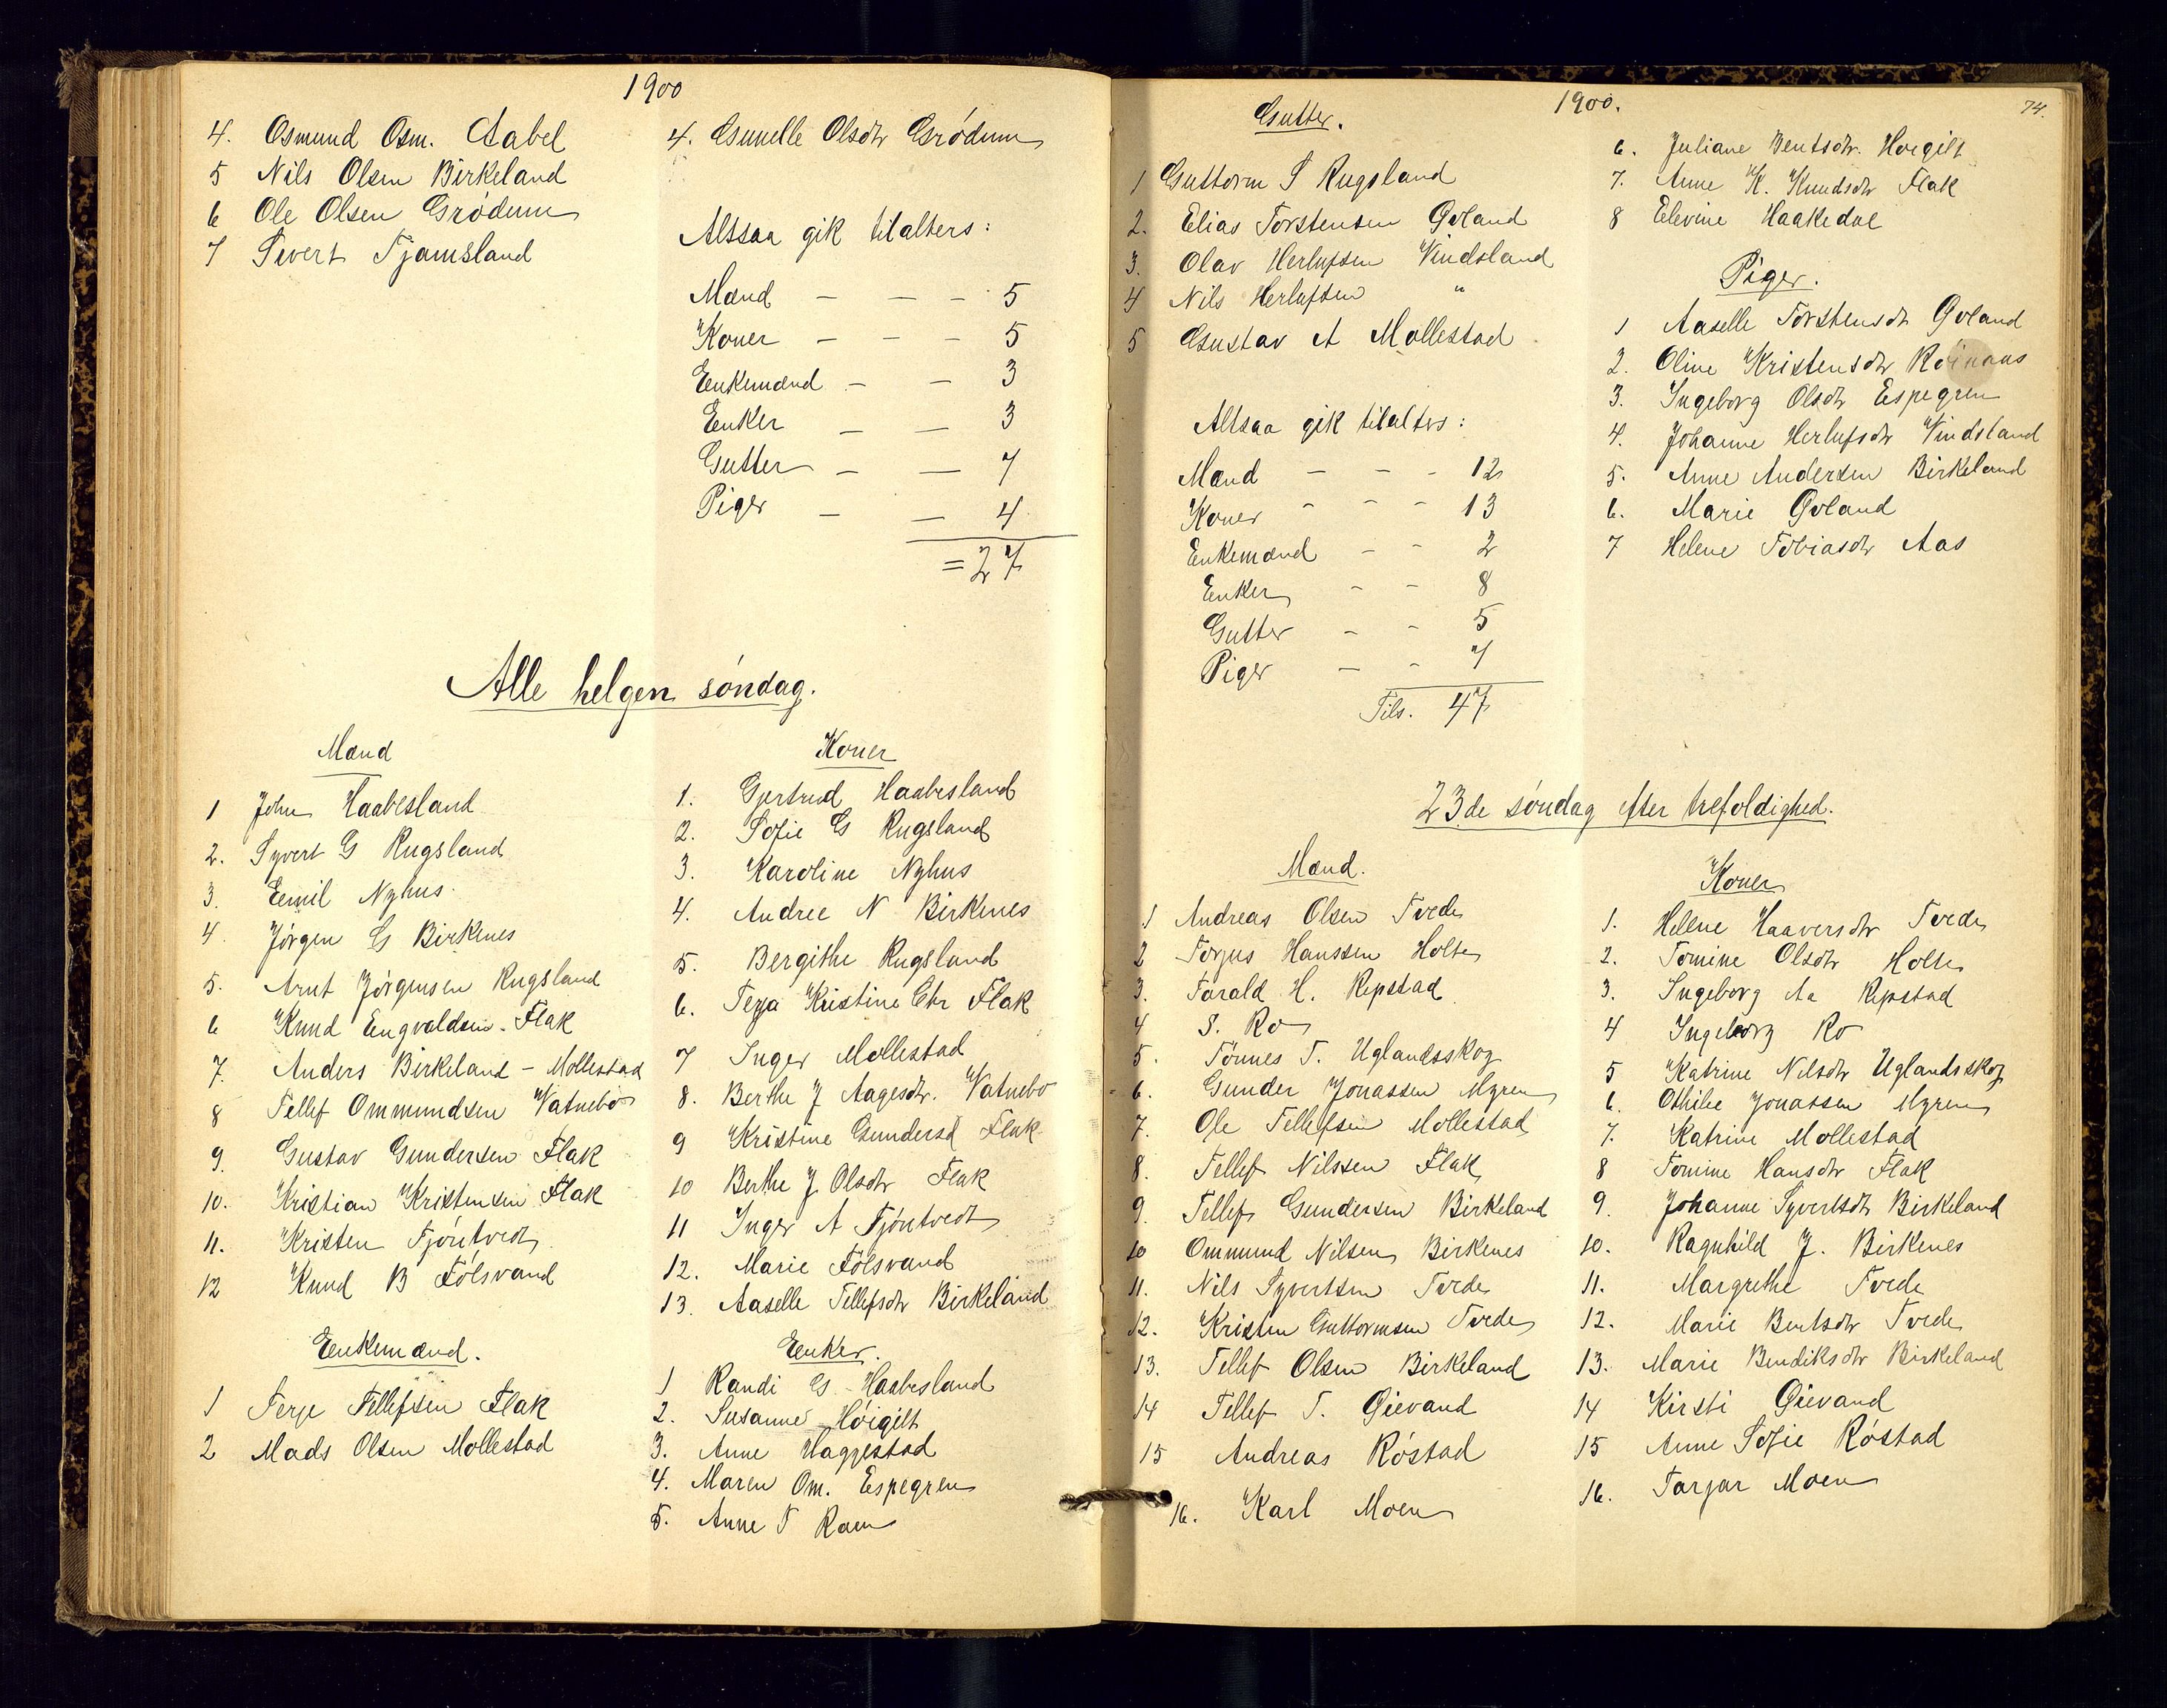 1900
4. Osmund Osm. Aabel
5 Nils Olsen Birkeland
6 Ole Olsen Grødum
7 Sivert Tjamsland
4. Gunelle Olsdtr Grødum
Altsaa gik tilalters:
Mænd — — — 5
Koner — — — 5
Enkemænd — — 3
Enker — — 3
Gutter — — 7
Piger — — 4
= 27
Alle helgen søndag.
Mænd
1 John Haabesland
2. Syvert G Rugsland
3. Emil Nyhus
4. Jørgen G Birkenes
5. Arnt Jörgensen Rugsland
6 Knud Engvaldsen Flak
7. Anders Birkeland - Mollestad
8 Tellef Ommundsen Vatnebø
9. Gustav Gundersen Flak
10. Kristian Kristensen Flak
11. Kristen Tjöntvedt
12 Knud B Fölsvand
Koner
1. Gjertrud Haabesland
2. Sofie G Rugsland
3. Karoline Nyhus
4. Andree N Birkenes
5. Bergithe Rugsland
6. Terja Kristine Chr Flak
7 Inger Mollestad
8. Berthe J Aagesdtr. Vatnebø
9 Kristine Gundersd Flak
10 Berthe J Olsdtr Flak
11 Inger A Tjöntvedt
12. Marie Fölsvand
13. Aaselle Tellefsdtr Birkeland
Enkemænd.
1 Terje Tellefsen Flak
2 Mads Olsen Mollestad
Enker.
1 Randi G Haabesland
2. Susanne Höigilt
3. Anne Haggestad
4. Maren Om. Espegren
5. Anne T Raen
1900.
74.
Gutter.
1 Guttorm S Rugsland
2. Elias Torstensen Øvland
3. Olav Herlufsen Vindsland
4 Nils Herlufsen "
5 Gustav A Mollestad
Altsaa gik tilalters:
Mænd — — — 12
Koner — — — 13
Enkemænd — — 2
Enker — — 8
Gutter — — 5
Piger — — 7
Tils. 47
6. Juliane Bentsdtr. Høigilt
7. Anne K. Knudsdtr Flak
8 Elevine Haakedal
Piger.
1 Aaselle Torstensdtr Øvland
2. Oline Kristensdtr
3. Ingeborg Olsdtr Espegren
4. Johanne Herlufsdtr Vindsland
5. Anne Andersen Birkeland
6. Marie Øvland
7 Helene Tobiasdtr Aas
23de søndag efter trefoldighed.
Mænd.
1 Andreas Olsen Tvede
2 Torjus Hanssen Holte
3. Tarald H. Repstad
4 S. Ro
5. Tönnes T. Uglandsskog
6. Gunder Jonassen Myren
7. Ole Tellefsen Mollestad
8. Tellef Nilssen Flak
9. Tellef Gundersen Birkeland
10 Ommund Nilsen Birkenes
11. Nils Syvertsen Tvede
12. Kristen Guttormsen Tvede
13. Tellef Olsen Birkeland
14 Tellef T. Øievand
15 Andreas Röstad
16. Karl Moen
Koner
1. Helene Haaversdtr Tvede
2. Tomine Olsdtr Holte
3. Ingeborg Aa Repstad
4 Ingeborg Ro
5 Katrine Nilsdtr Uglandsskog
6. Othilie Jonassen Myren
7. Katrine Mollestad
8 Tomine Hansdtr Flak
9. Johanne Syvertsdtr Birkeland
10. Ragnhild J. Birkenes
11. Margrethe Tvede
12. Marie Bentsdtr Tvede
13. Marie Bendiksdtr Birkeland
14 Kirsti Øievand
15 Anne Sofie Röstad
16. Tarjar Moen